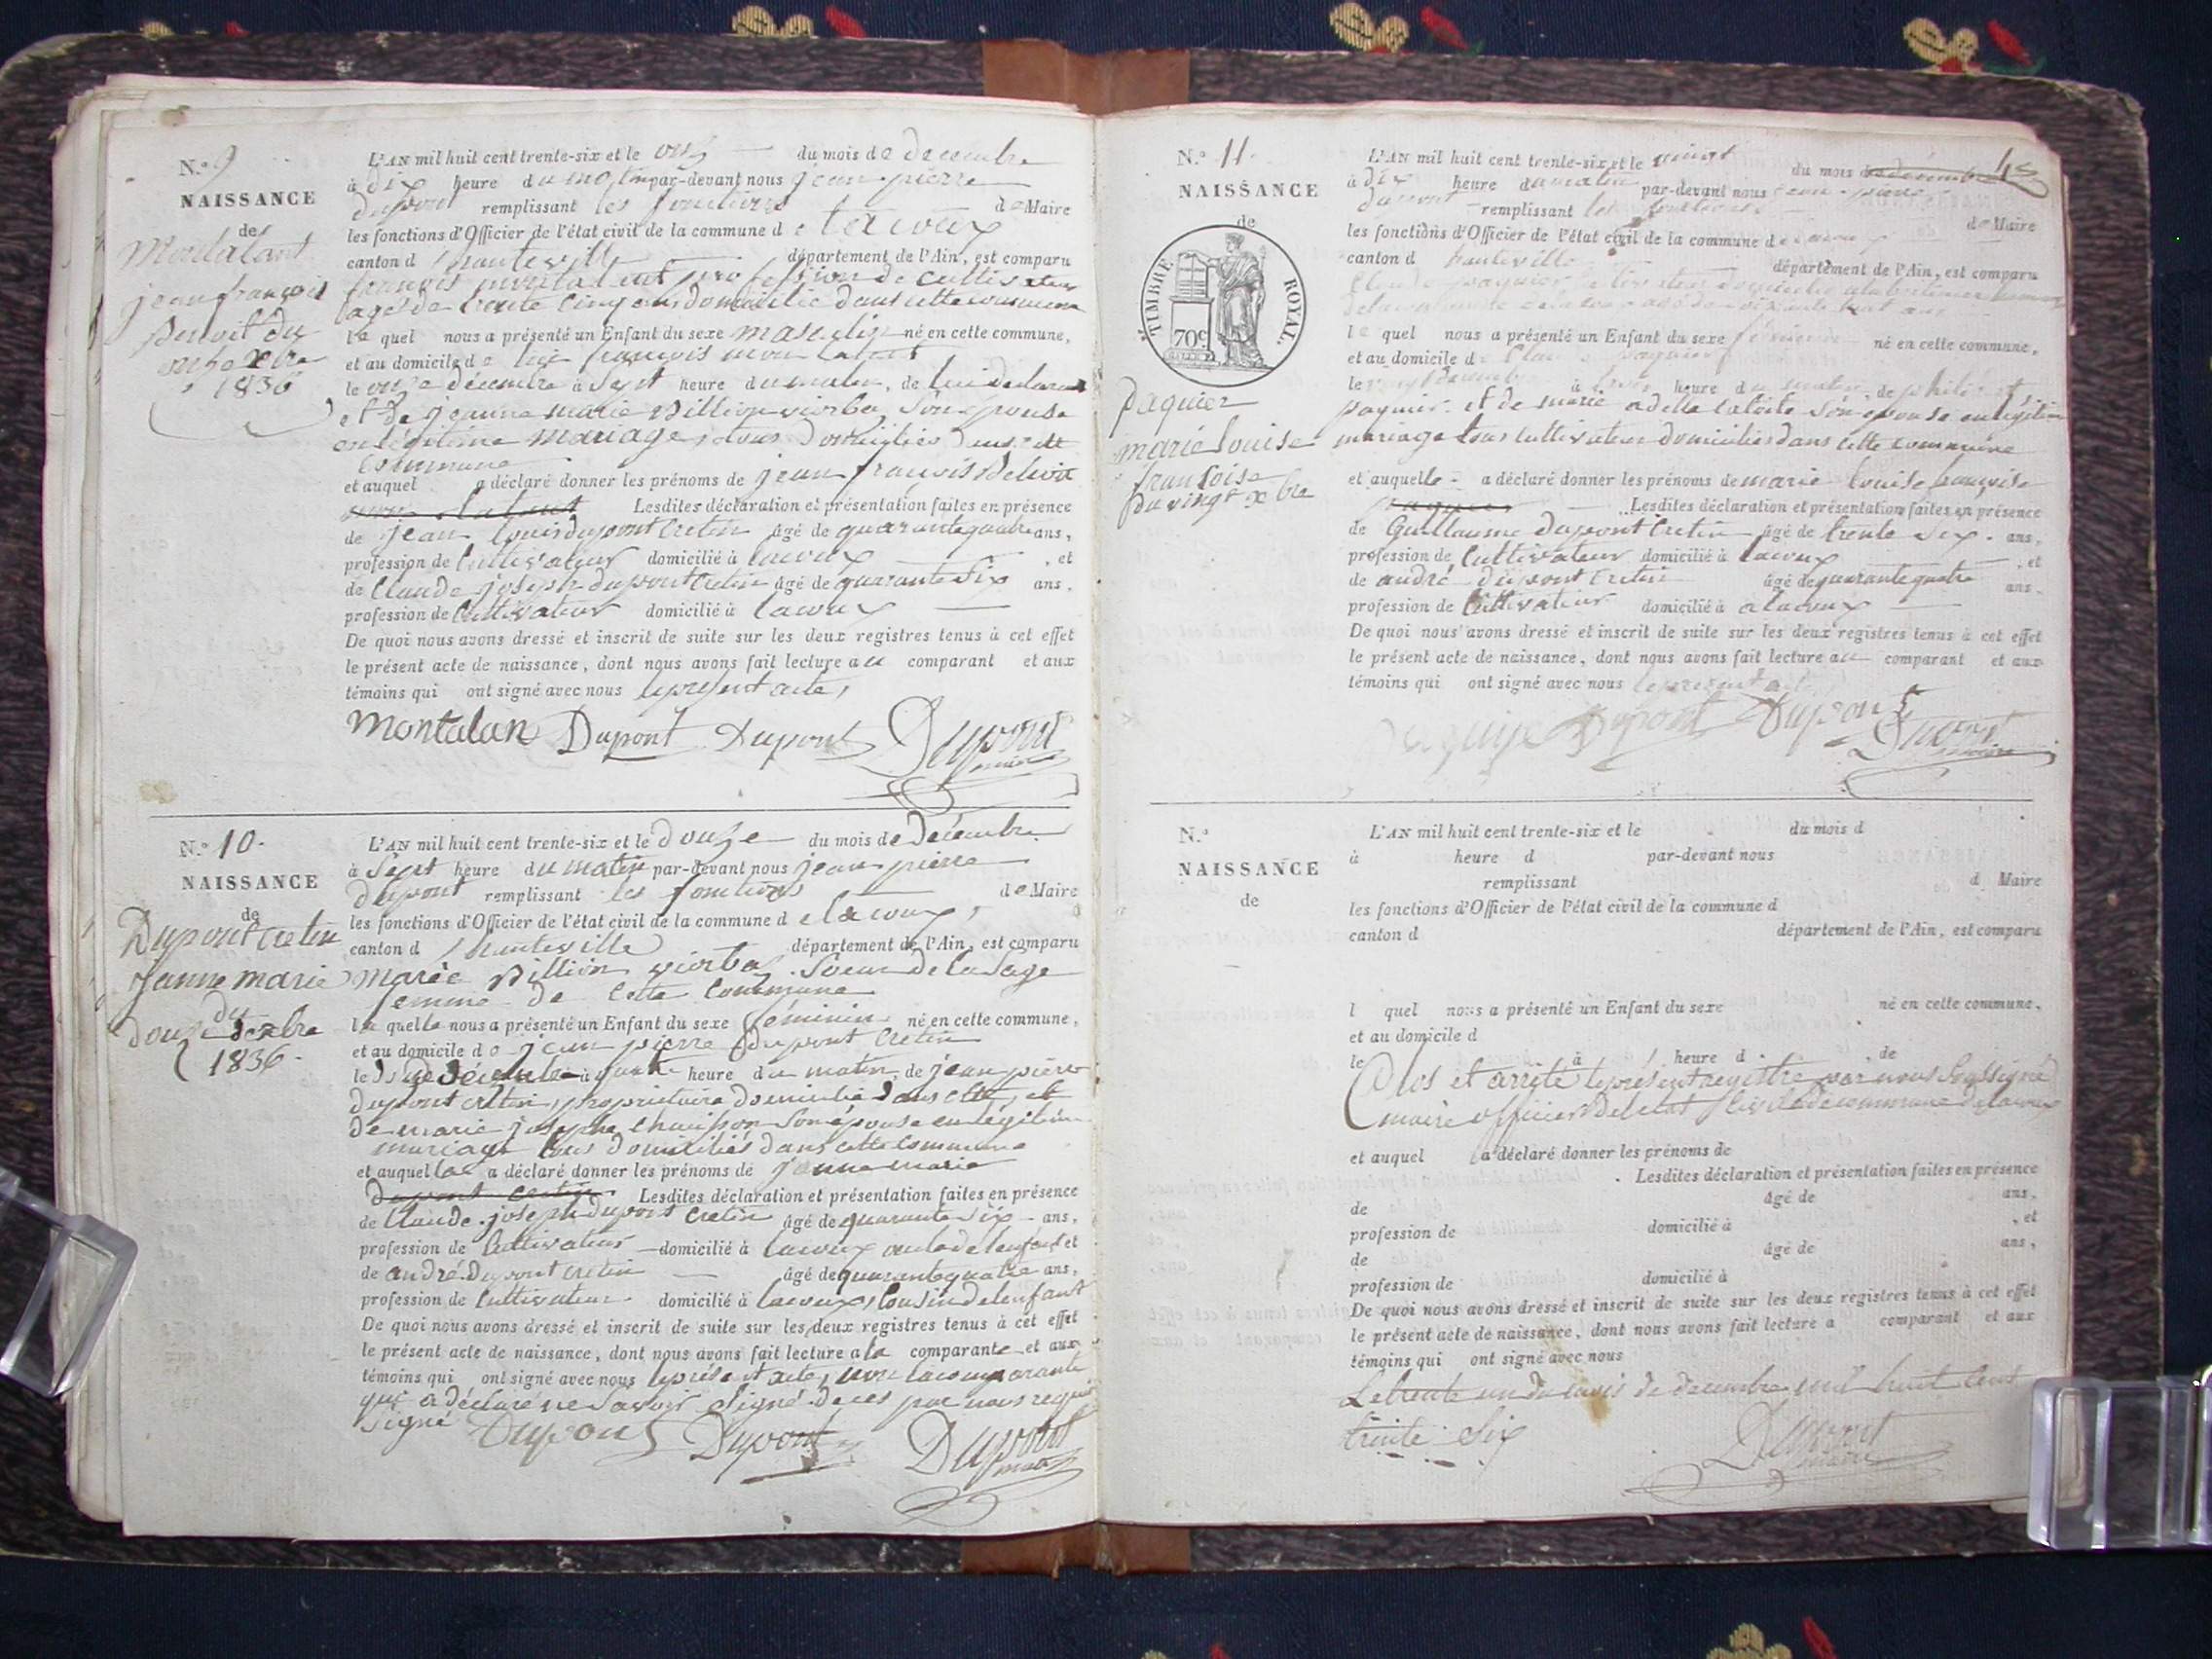 N.º 9
NAISSANCE
de
Montalant
jean françois
du
onze Xbre
1836
L'AN mil huit cent trente-six et le onze du mois de decembre
à dix heure du matin par-devant nous jean pierre
dupont remplissant les fonctions de Maire
les fonctions d'Officier de l'état civil de la commune de lacoux
canton d'hauteville département de l'Ain, est comparu
françois montalant profession de cultivateur
agé de trente cinq ans domicilié dans cette commune
le quel nous a présenté un Enfant du sexe masculin né en cette commune,
et au domicile de lui françois montalant
le onze decembre à sept heure du matin, de lui declarant
et de jeanne marie Billion son épouse
en légitime mariage, tous domiciliés dans cette
commune
et auquel a déclaré donner les prénoms de jean françois
montalant Lesdites déclaration et présentation faites en présence
de jean louis dupont cretin âgé de quarante quatre ans,
profession de cultivateur domicilié à lacoux , et
de Claude joseph dupont cretin âgé de quarante six ans,
profession de cultivateur domicilié à lacoux
De quoi nous avons dressé et inscrit de suite sur les deux registres tenus à cet effet
le présent acte de naissance, dont nous avons fait lecture au comparant et aux
témoins qui ont signé avec nous le présent acte,
Montalan Dupont Dupont Dupont
maire
N.º 10.
NAISSANCE
de
Dupont Cretin
Janne marie
du
douze
1836.
L'AN mil huit cent trente-six et le douze du mois de Décembre
à Sept heure du matin par-devant nous jean pierre
dupont remplissant les fonctions de Maire
les fonctions d'Officier de l'état civil de la commune de lacoux,
canton d'hauteville département de l'Ain, est comparu
marie Billion Soeur de la Sage
femme de cette commune
la quelle nous a présenté un Enfant du sexe féminin né en cette commune,
et au domicile de jean pierre dupont Cretin
le à heure du matin, de jean pierre
dupont cretin, propriétaire domicilié dans cette, et
de marie josephe son épouse en légitime
mariage tous domiciliés dans cette commune
et auquel a déclaré donner les prénoms de janne marie
dupont cretin Lesdites déclaration et présentation faites en présence
de Claude joseph dupont Cretin âgé de quarante six ans,
profession de Cultivateur domicilié à lacoux de l'enfant et
de andré Dupont cretin âgé de quarante quatre ans,
profession de Cultivateur domicilié à lacoux, Cousin de lenfant
De quoi nous avons dressé et inscrit de suite sur les deux registres tenus à cet effet
le présent acte de naissance, dont nous avons fait lecture a la comparante et aux
témoins qui ont signé avec nous le présent acte, non la comparante
qui a déclaré ne Savoir Signé de ces par nous requis
Signé Dupont Dupont Dupont
maire
48
N.º 11.
NAISSANCE
de
TIMBRE ROYAL.
70c
paquier
marie louise
françoise
du vingt xbre
L'AN mil huit cent trente-six et le vingt du mois de décembre
à dix heure du matin par-devant nous jean pierre
dupont remplissant les fonctions de Maire
les fonctions d'Officier de l'état civil de la commune de lacoux
canton d'hauteville département de l'Ain, est comparu
Claude paquier cultivateur domicilié
le quel nous a présenté un Enfant du sexe féminin né en cette commune,
et au domicile de Claude paquier
le vingt decembre à heure du matin, de
paquier et de marie adelle son epouse en légitime
mariage tous cultivateur domiciliés dans cette commune
et auquelle a déclaré donner les prénoms de marie louise françoise
paquier Lesdites déclaration et présentation faites en présence
de Guillaume dupont Cretin âgé de trente six ans,
profession de Cultivateur domicilié à lacoux , et
de andré dupont cretin âgé de quarante quatre ans.
profession de Cultivateur domicilié à a lacoux
De quoi nous avons dressé et inscrit de suite sur les deux registres tenus à cet effet
le présent acte de naissance, dont nous avons fait lecture au comparant et aux
témoins qui ont signé avec nous le présent acte
Dupont Dupont Dupont
maire
N.º
NAISSANCE
de
L'AN mil huit cent trente-six et le du mois d
à heure d par-devant nous
remplissant d Maire
les fonctions d'Officier de l'état civil de la commune d
canton d département de l'Ain, est comparu
l quel nous a présenté un Enfant du sexe né en cette commune,
et au domicile d
le à heure d , de
Clos et arrêté le présent registre par nous Soussigné
maire officier de letat Civil de commune de lacoux
et auquel a déclaré donner les prénoms de
Lesdites déclaration et présentation faites en présence
de âgé de ans,
profession de domicilié à , et
de âgé de ans,
profession de domicilié à
De quoi nous avons dressé et inscrit de suite sur les deux registres tenus à cet effet
le présent acte de naissance, dont nous avons fait lecture a comparant et aux
témoins qui ont signé avec nous
Le trente un du mois de decembre mil huit cent
trente Six
Dupont
maire